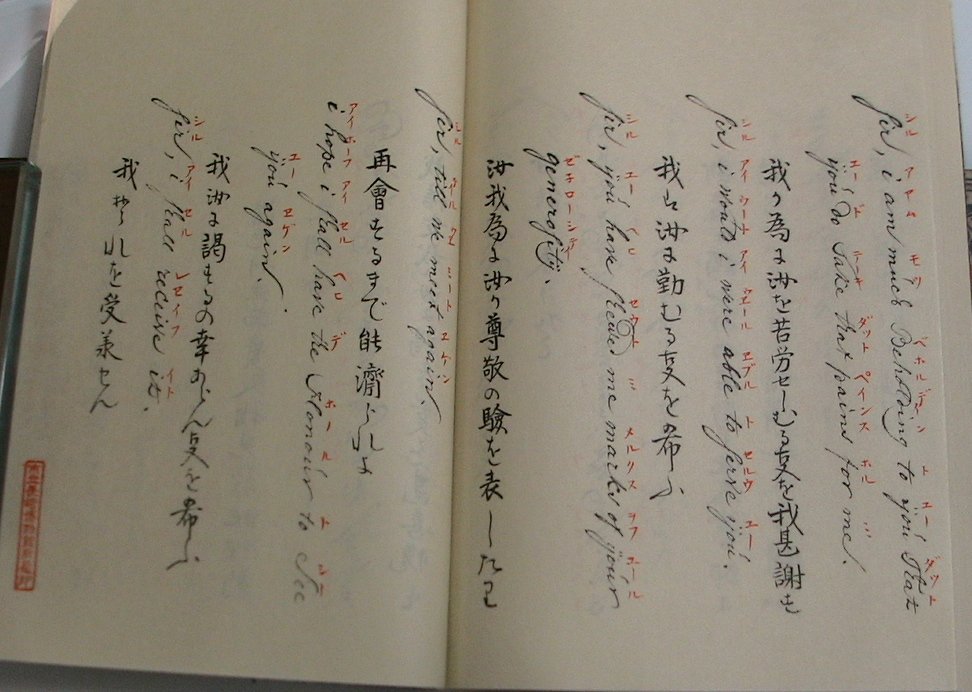 シル アイ アム モツ ベホルデイン ト ユー ダット
Sir, i am much Beholding to you That
ユー ド テーキ ダット ペインス ホル ミ
you do Take that pains for me.
我カ為に汝を苦労せしむる事を我甚謝す
シル アイ ウート アイ ウエール エブル ト セルウ ユー
Sir, i would i were able to serve you.
我は汝に勤むる事を希ふ
シル ユー ヘヒ セウト ミ メルクス ヲフ ユール
Sir, you have shewd me marks of your
ゼネローシテイ
generosity.
汝我為に汝の尊敬の験を表したり
シル テル ウエ ミート エゲン
Sir, till we meet again.
再會するまで能濟られよ
アイ ホーフ アイ セル ヘヒ デ ホールト シー
i hope i shall have the Honour to See
ユー エゲン
you again.
我汝に謁するの幸あらん事を希ふ
シル アイ セル レセイフ イト
Sir, i shall receive it.
我これを受義せん